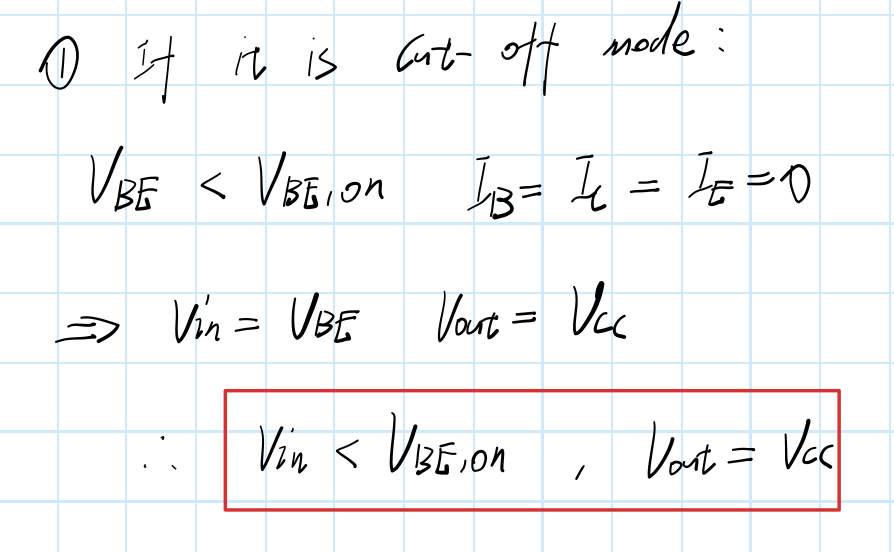 ① If it is cut-off mode:
V_BE < V_BE,on I_B = I_C = I_E = 0
⇒ Vin = V_BE Vout = Vcc
∴ Vin < V_BE,on , Vout = Vcc